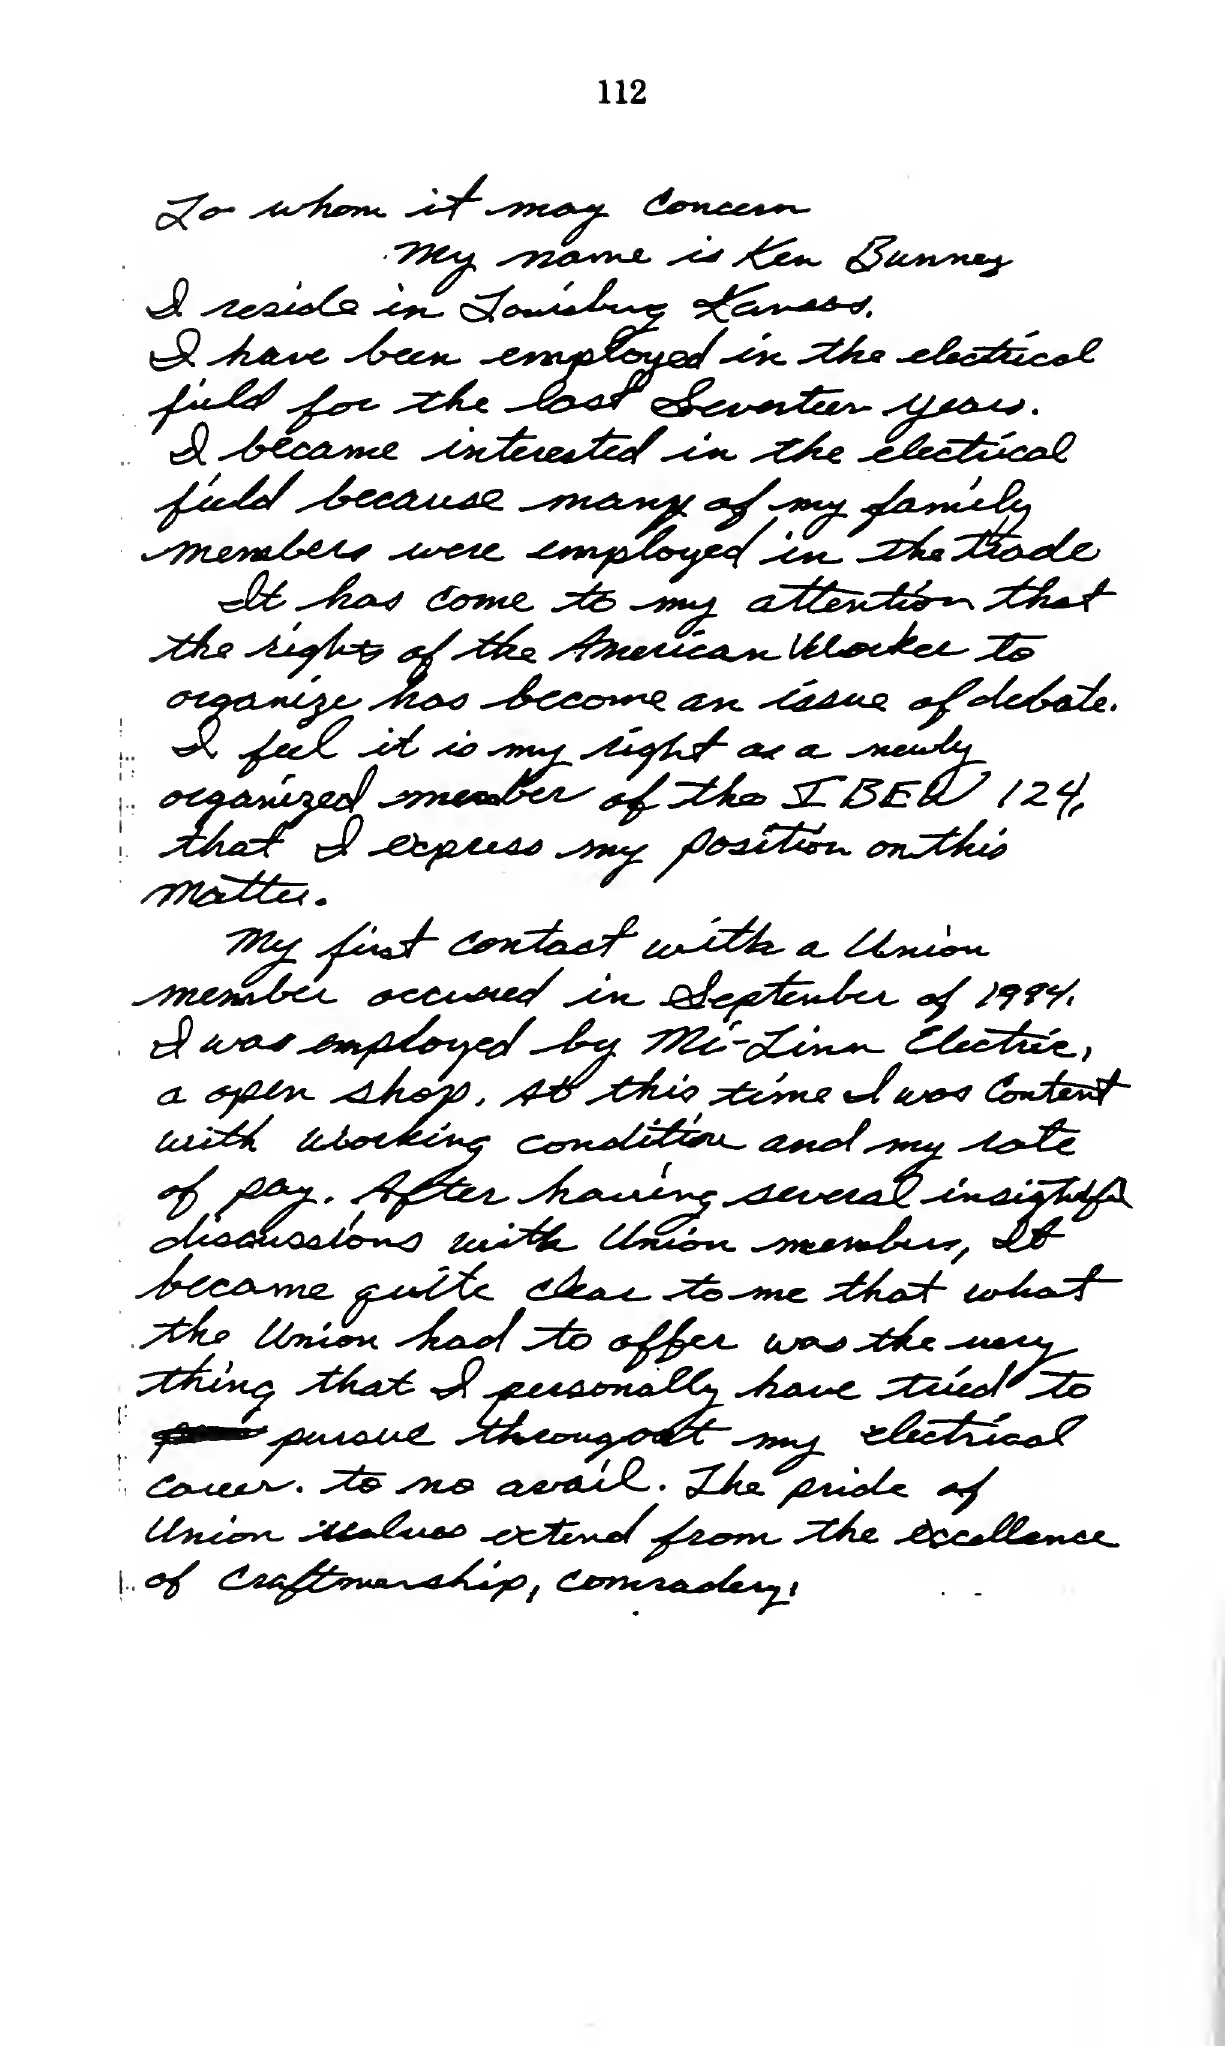 112
To whom it may Concern
My name is Ken Bunney
I reside in Louisburg Kansas.
I have been employed in the electrical
field for the last Seventeen years.
I became interested in the electrical
field because many of my family
members were employed in the trade
It has come to my attention that
the rights of the American Worker to
organize has become an issue of debate.
I feel it is my right as a newly
organized member of the IBEW 124,
that I express my position on this
matter.
My first contact with a Union
member occured in September of 1994.
I was employed by Mi-Linn Electric,
a open shop. At this time I was Content
with working condition and my rate
of pay. After having several insightful
discussions with Union members, It
became quite clear to me that what
the Union had to offer was the very
thing that I personally have tried to
pursue througout my electrical
career. to no avail. The pride of
Union values extend from the excellence
of Craftmanship, comradery,